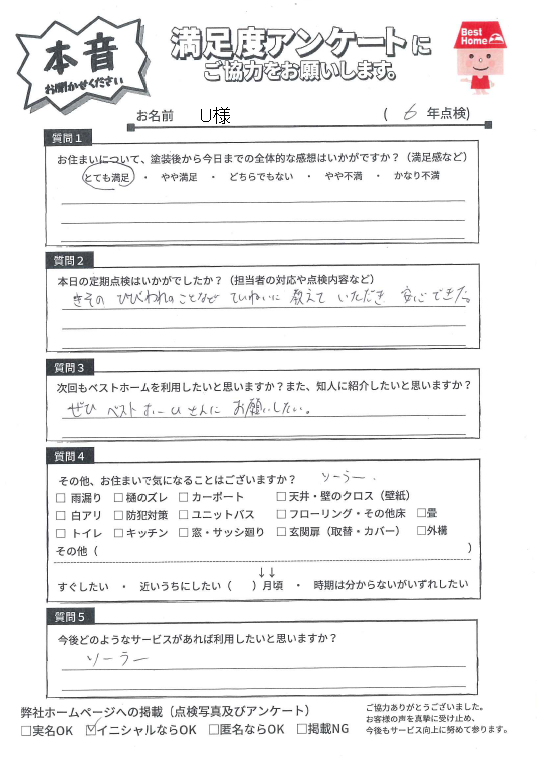 本音
お聞かせください
満足度アンケートに
ご協力をお願いします。
Best
Home
お名前 U様 ( 6 年点検)
質問1
お住まいについて、塗装後から今日までの全体的な感想はいかがですか?(満足感など)
とても満足 ・ やや満足 ・ どちらでもない ・ やや不満 ・ かなり不満
質問2
本日の定期点検はいかがでしたか?(担当者の対応や点検内容など)
きその ひびわれのことなど ていねいに 教えて いただき 安心できた。
質問3
次回もベストホームを利用したいと思いますか?また、知人に紹介したいと思いますか?
ぜひ ベストホームさんに お願いしたい。
質問4
その他、お住まいで気になることはございますか? ソーラー.
□ 雨漏り □ 樋のズレ □ カーポート □ 天井・壁のクロス(壁紙)
□ 白アリ □ 防犯対策 □ ユニットバス □ フローリング・その他床 □畳
□ トイレ □ キッチン □ 窓・サッシ廻り □ 玄関扉(取替・カバー) □外構
その他( )
↓↓
すぐしたい ・ 近いうちにしたい( )月頃 ・ 時期は分からないがいずれしたい
質問5
今後どのようなサービスがあれば利用したいと思いますか?
ソーラー
弊社ホームページへの掲載(点検写真及びアンケート)
□実名OK ☑イニシャルならOK □匿名ならOK □掲載NG
ご協力ありがとうございました。
お客様の声を真摯に受け止め、
今後もサービス向上に努めて参ります。